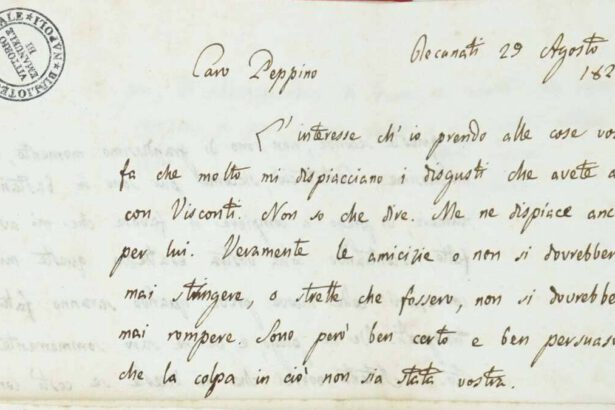 BIBLIOTECA NAZIONALE VITTORIO EMANUELE III NAPOLI
Caro Peppino
Recanati 29 Agosto
182
L'interesse ch'io prendo alle cose vos
fa che molto mi dispiacciano i disgusti che avete a
con Visconti. Non so che dire. Me ne dispiace anc
per lui. Veramente le amicizie o non si dovrebber
mai stringere, o strette che fossero, non si dovrebbe
mai rompere. Sono però ben certo e ben persuas
che la colpa in ciò non sia stata vostra.